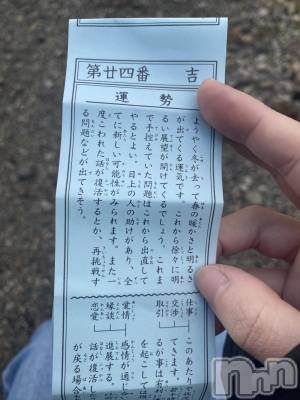 第廿四番　吉
運勢
ようやく冬が去って春の暖かさと明るさ
が出てくる運気です。これから徐々に明
るい展望が開けてくるでしょう。これま
で手控えていた問題はこれから出直して
やるとよい。目上の人の助けがあり、全
てに新しい可能性がみられます。また一
度こわれた話が復活するとか、再挑戦す
る問題などが出てきそう。
仕事
交渉
取引
このあたり
てきます。
るが事は有
を起こして
愛情
縁談
恋愛
感情が通じ
進展する。
話が復活し
が戻る場合